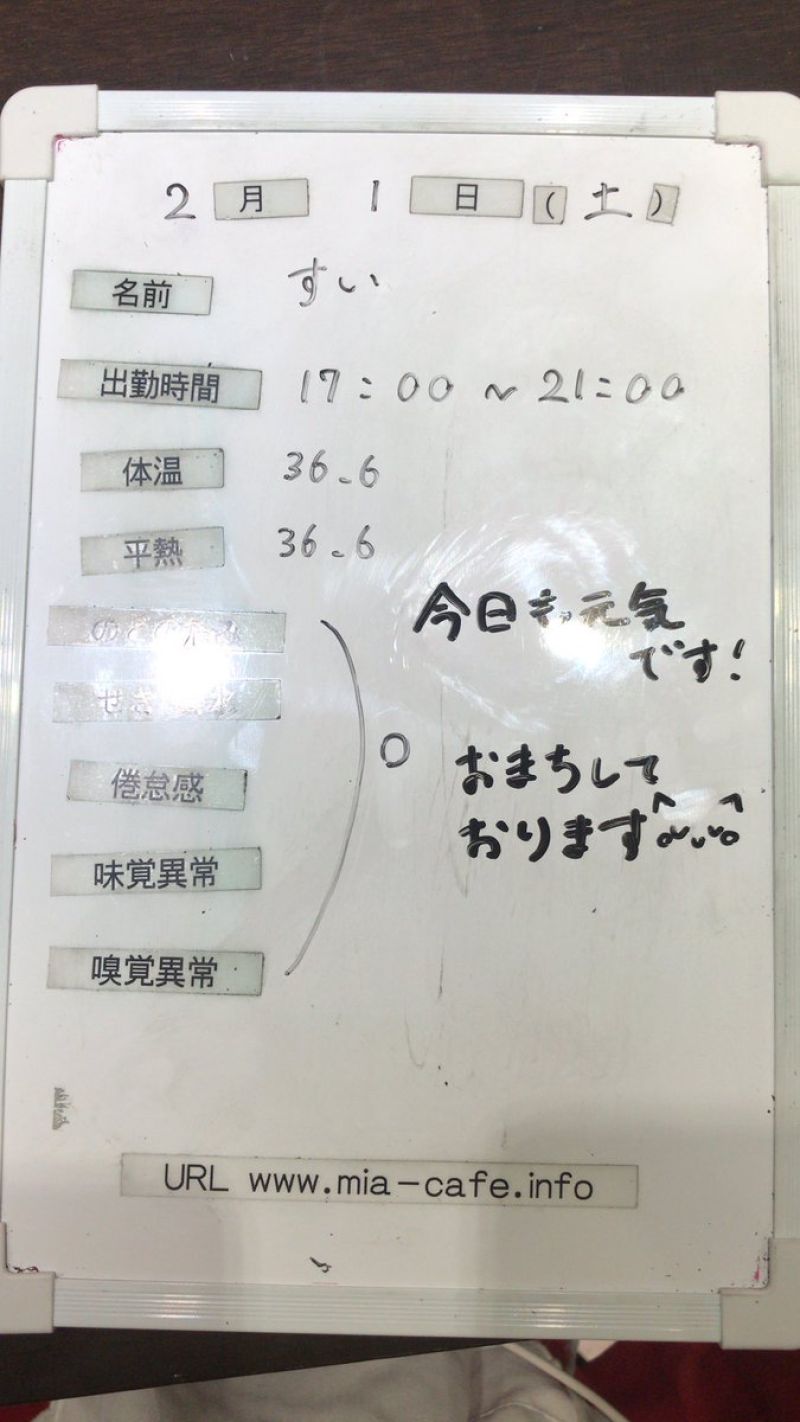 2月 1日(土)
名前 すい
出勤時間 17:00 ~ 21:00
体温 36.6
平熱 36.6
今日も元気
です!
倦怠感 0
おまちして
おります
味覚異常
嗅覚異常
URL www.mia-cafe.info